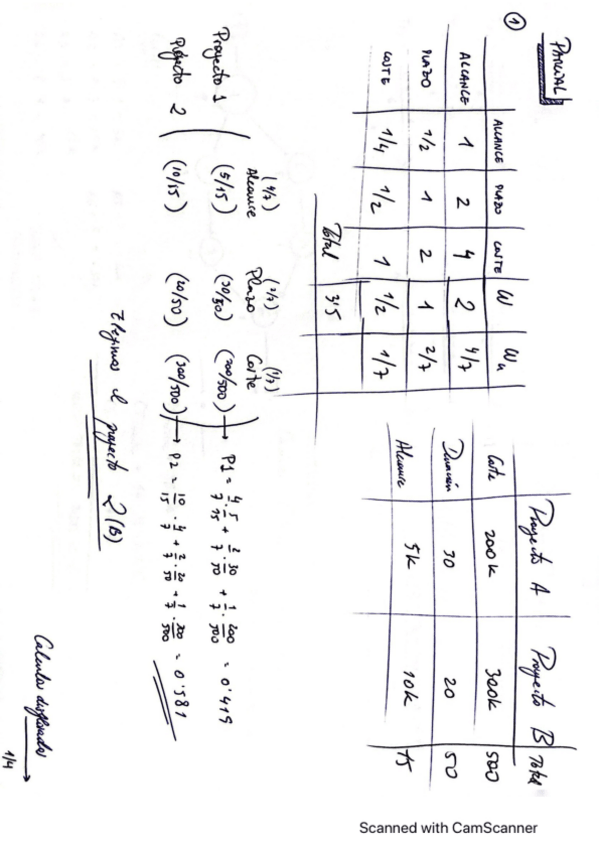 PARCIAL
①
ALCANCE PLAZO COSTE W Wn
ALCANCE 1 2 4 2 4/7
PLAZO 1/2 1 2 1 2/7
COSTE 1/4 1/2 1 1/2 1/7
Total 3'5
Proyecto A Proyecto B Total
Coste 200k 300k 500
Duración 30 20 50
Alcance 5k 10k 15
(4/7) (2/7) (1/7)
Alcance Plazo Coste
Proyecto 1 (5/15) (30/50) (200/500) → P1 = 4/7 · 5/15 + 2/7 · 30/50 + 1/7 · 200/500 = 0'419
Proyecto 2 (10/15) (20/50) (300/500) → P2 = 10/15 · 4/7 + 2/7 · 20/50 + 1/7 · 300/500 = 0'581
Elegimos el proyecto 2 (B)
1/4
Scanned with CamScanner